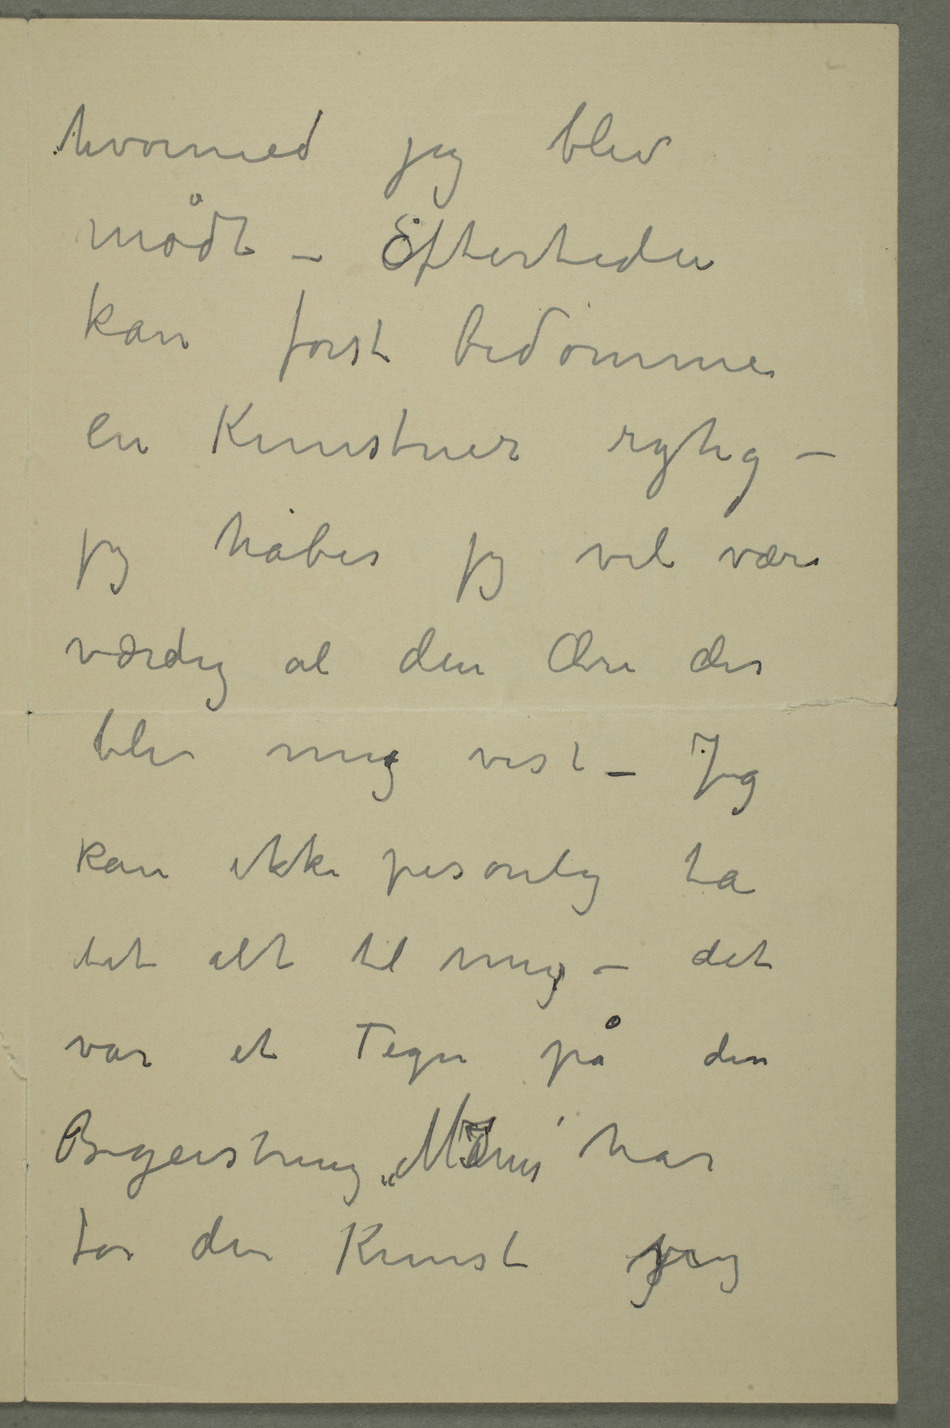 hvormed jeg blev
mødt – Eftertiden
kan først bedømme
en Kunstner rigtig –
jeg håber jeg vil være
værdig al den Ære der
blev mig vist – Jeg
kan ikke pesonlig ta
det alt til mig – det
var et Tegn på den
Begeistring „Manes“ har
for den Kunst jeg